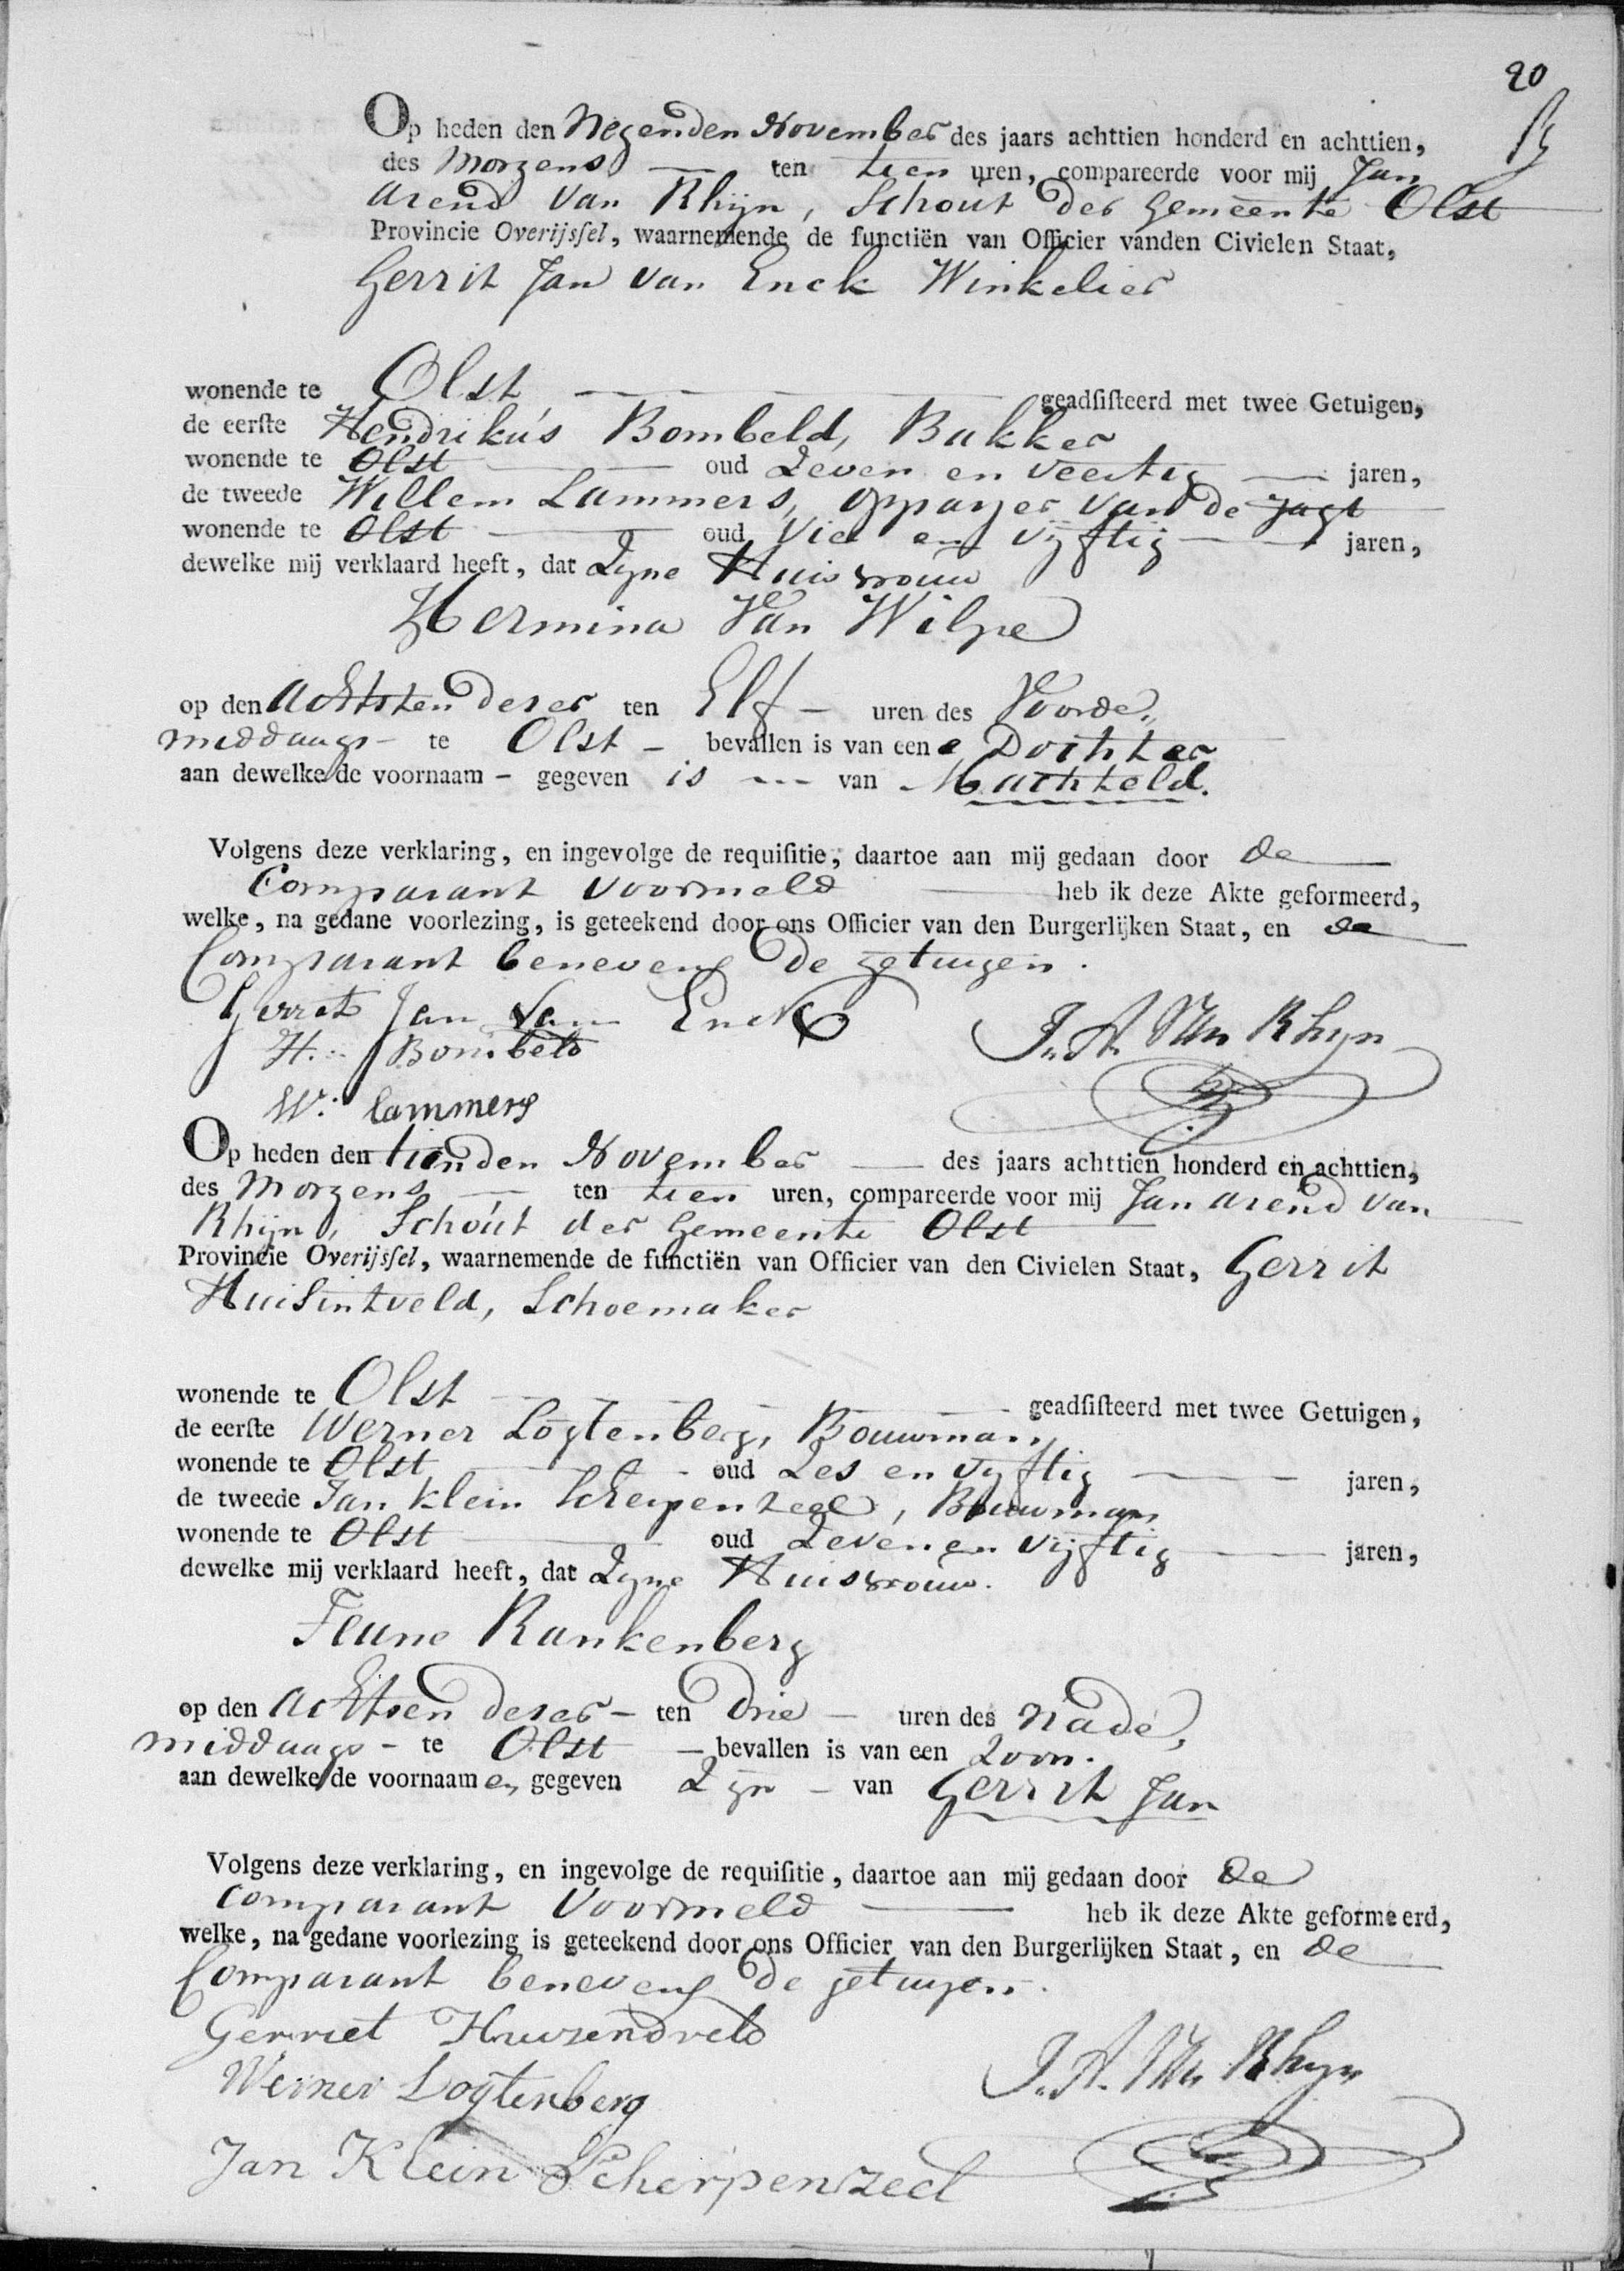 20
Op heden den Negenden November des jaars achttien honderd en achttien,
des Morgens — ten tien uren, compareerde voor mij Jan
Arend van Rhijn, Schout der Gemeente Olst
Provincie Overijsſel, waarnemende de functiën van Officier vanden Civielen Staat,
Gerrit Jan van Enck Winkelier
wonende te Olst — geadſiſteerd met twee Getuigen,
de eerſte Hendrikus Bombeld, Bakker
wonende te Olst — oud Zeven en veertig — jaren,
de tweede Willem Lammers, oppasser van de Jagt
wonende te Olst — oud Vier en vijftig — jaren,
dewelke mij verklaard heeft, dat Zyne Huisvrouw
Hermina Van Wilpe
op den Achtsten deser ten Elf — uren des Voorde„
middaags — te Olst — bevallen is van eene Dochter
aan dewelke de voornaam — gegeven is — van Machteld.
Volgens deze verklaring, en ingevolge de requiſitie, daartoe aan mij gedaan door de
Comparant voormeld — heb ik deze Akte geformeerd,
welke, na gedane voorlezing, is geteekend door ons Officier van den Burgerlijken Staat, en de
Comparant benevens de getuigen.
Gerret Jan van Enck
H. Bombeld
J. A. Van Rhyn
W. Lammers
Op heden den tienden November — des jaars achttien honderd en achttien,
des Morgens — ten tien uren, compareerde voor mij Jan Arend van
Rhijn, Schout der Gemeente Olst
Provincie Overijsſel, waarnemende de functiën van Officier van den Civielen Staat, Gerrit
Huisintveld, Schoemaker
wonende te Olst — geadſiſteerd met twee Getuigen,
de eerſte Werner Logtenberg, Bouwman
wonende te Olst — oud Zes en vyftig — jaren,
de tweede Jan Klein Scherpenzeel, Bouwman
wonende te Olst — oud Zeven en vijftig — jaren,
dewelke mij verklaard heeft, dat Zyne Huisvrouw.
Jeune Rankenberg
op den Achtsen deser — ten Drie — uren des Nade„
middaags — te Olst — bevallen is van een Zoon.
aan dewelke de voornaam en gegeven Zyn — van Gerrit Jan
Volgens deze verklaring, en ingevolge de requiſitie, daartoe aan mij gedaan door de
Comparant voormeld — heb ik deze Akte geformeerd,
welke, na gedane voorlezing is geteekend door ons Officier van den Burgerlijken Staat, en de
Comparant benevens de getuygen.
Gerriet Huisendveld
Werner Logtenberg
J. A. Van Rhyn
Jan Klein Scherpenzeel